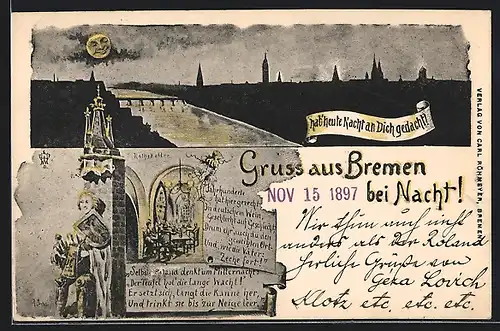 hat heute Nacht an Dich gedacht!
Gruss aus Bremen
bei Nacht!
NOV 15 1897
Rathskeller.
Jahrhunderte
hat hier gezecht
In deutschem Wein,
Geschlecht auf Geschlecht.
Drum ehr' auch du den
geweihten Ort
Und, wie die Väter
Zeche fort!
Selbst Roland denkt um Mitternacht:
Der Teufel hol' die lange Wacht!
Er setzt sich, langt die Kanne her
Und trinkt sie bis zur Neige leer.
Wir thun auch nicht
anders als der Roland
Herzliche Grüße von
Geka Lovich
Klotz etc. etc. etc.
VERLAG VON CARL RÖHMEYER, BREMEN